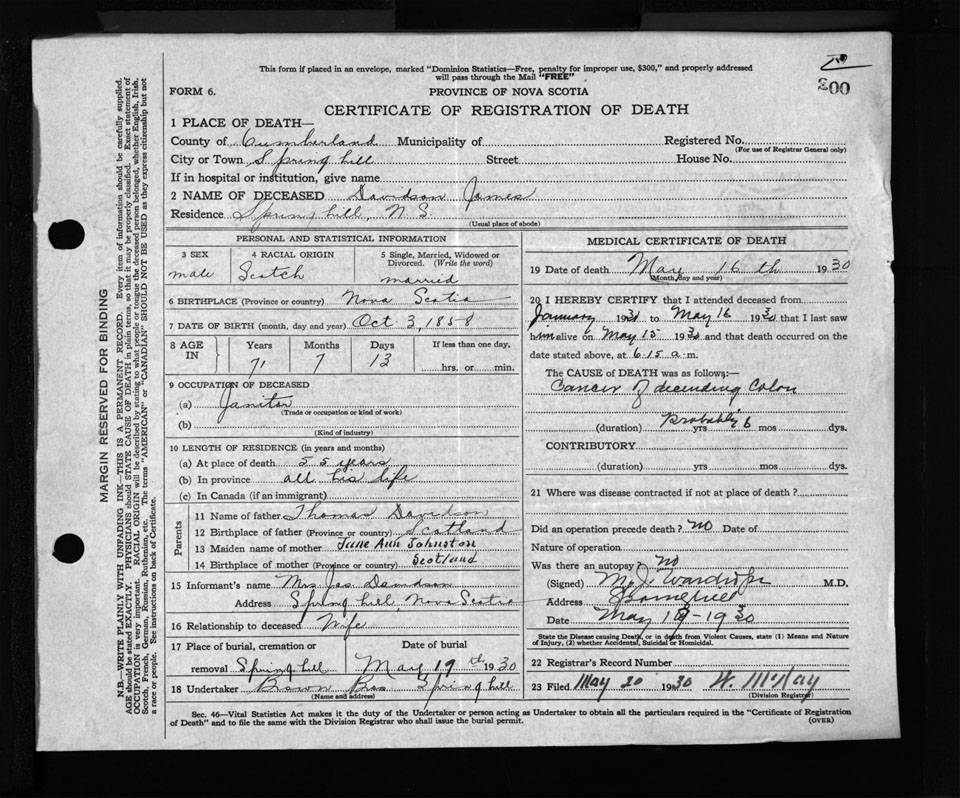 This form if placed in an envelope, marked "Dominion Statistics—Free, penalty for improper use, $300," and properly addressed
will pass through the Mail "FREE"
300
FORM 6.
PROVINCE OF NOVA SCOTIA
CERTIFICATE OF REGISTRATION OF DEATH
1 PLACE OF DEATH—
County of Cumberland Municipality of Registered No.
(For use of Registrar General only)
City or Town Spring hill Street House No.
If in hospital or institution, give name
2 NAME OF DECEASED Davidson James
Residence Spring hill, N. S.
(Usual place of abode)
PERSONAL AND STATISTICAL INFORMATION
3 SEX 4 RACIAL ORIGIN 5 Single, Married, Widowed or
Divorced. (Write the word)
male Scotch married
6 BIRTHPLACE (Province or country) Nova Scotia
7 DATE OF BIRTH (month, day and year) Oct 3, 1858
8 AGE IN Years Months Days If less than one day.
71 7 13 hrs. or min.
9 OCCUPATION OF DECEASED
(a) Janitor
(Trade or occupation or kind of work)
(b)
(Kind of industry)
10 LENGTH OF RESIDENCE (in years and months)
(a) At place of death 55 years
(b) In province all his life
(c) In Canada (if an immigrant)
Parents
11 Name of father Thomas Davidson
12 Birthplace of father (Province or country) Scotland
13 Maiden name of mother Jane Ann Johnston
14 Birthplace of mother (Province or country) Scotland
15 Informant's name Mrs Jas Davidson
Address Spring hill, Nova Scotia
16 Relationship to deceased Wife
17 Place of burial, cremation or Date of burial
removal Spring hill May 19th 1930
18 Undertaker Brown Bros Spring hill
(Name and address)
MEDICAL CERTIFICATE OF DEATH
19 Date of death May 16 th 1930
(Month, day and year)
20 I HEREBY CERTIFY that I attended deceased from
January 1930 to May 16 1930 that I last saw
him alive on May 15 1930 and that death occurred on the
date stated above, at 6 15 a.m.
The CAUSE OF DEATH was as follows:—
Cancer of decending Colon
Probably 6
(duration) yrs mos dys.
CONTRIBUTORY
(duration) yrs mos dys.
21 Where was disease contracted if not at place of death?
Did an operation precede death? no Date of
Nature of operation
Was there an autopsy? no
(Signed) Wardrope M.D.
Address
Date May 1930
State the Disease causing Death, or in death from Violent Causes, state (1) Means and Nature
of Injury, (2) whether Accidental, Suicidal or Homicidal.
22 Registrar's Record Number
23 Filed May 20 1930 W. McKay
(Division Registrar)
Sec. 46—Vital Statistics Act makes it the duty of the Undertaker or person acting as Undertaker to obtain all the particulars required in the "Certificate of Registration
of Death" and to file the same with the Division Registrar who shall issue the burial permit.
(OVER)
MARGIN RESERVED FOR BINDING
N.B.—WRITE PLAINLY WITH UNFADING INK—THIS IS A PERMANENT RECORD. Every item of information should be carefully supplied.
AGE should be stated EXACTLY. PHYSICIANS should STATE CAUSE OF DEATH in plain terms, so that it may be properly classified. Exact statement of
OCCUPATION is very important. RACIAL ORIGIN will be described by stating to what people or tongue the deceased person belonged, whether English, Irish,
Scotch, French, German, Russian, Ruthenian, etc. The terms "AMERICAN" or "CANADIAN" SHOULD NOT BE USED as they express citizenship but not
a race or people. See instructions on back of Certificate.